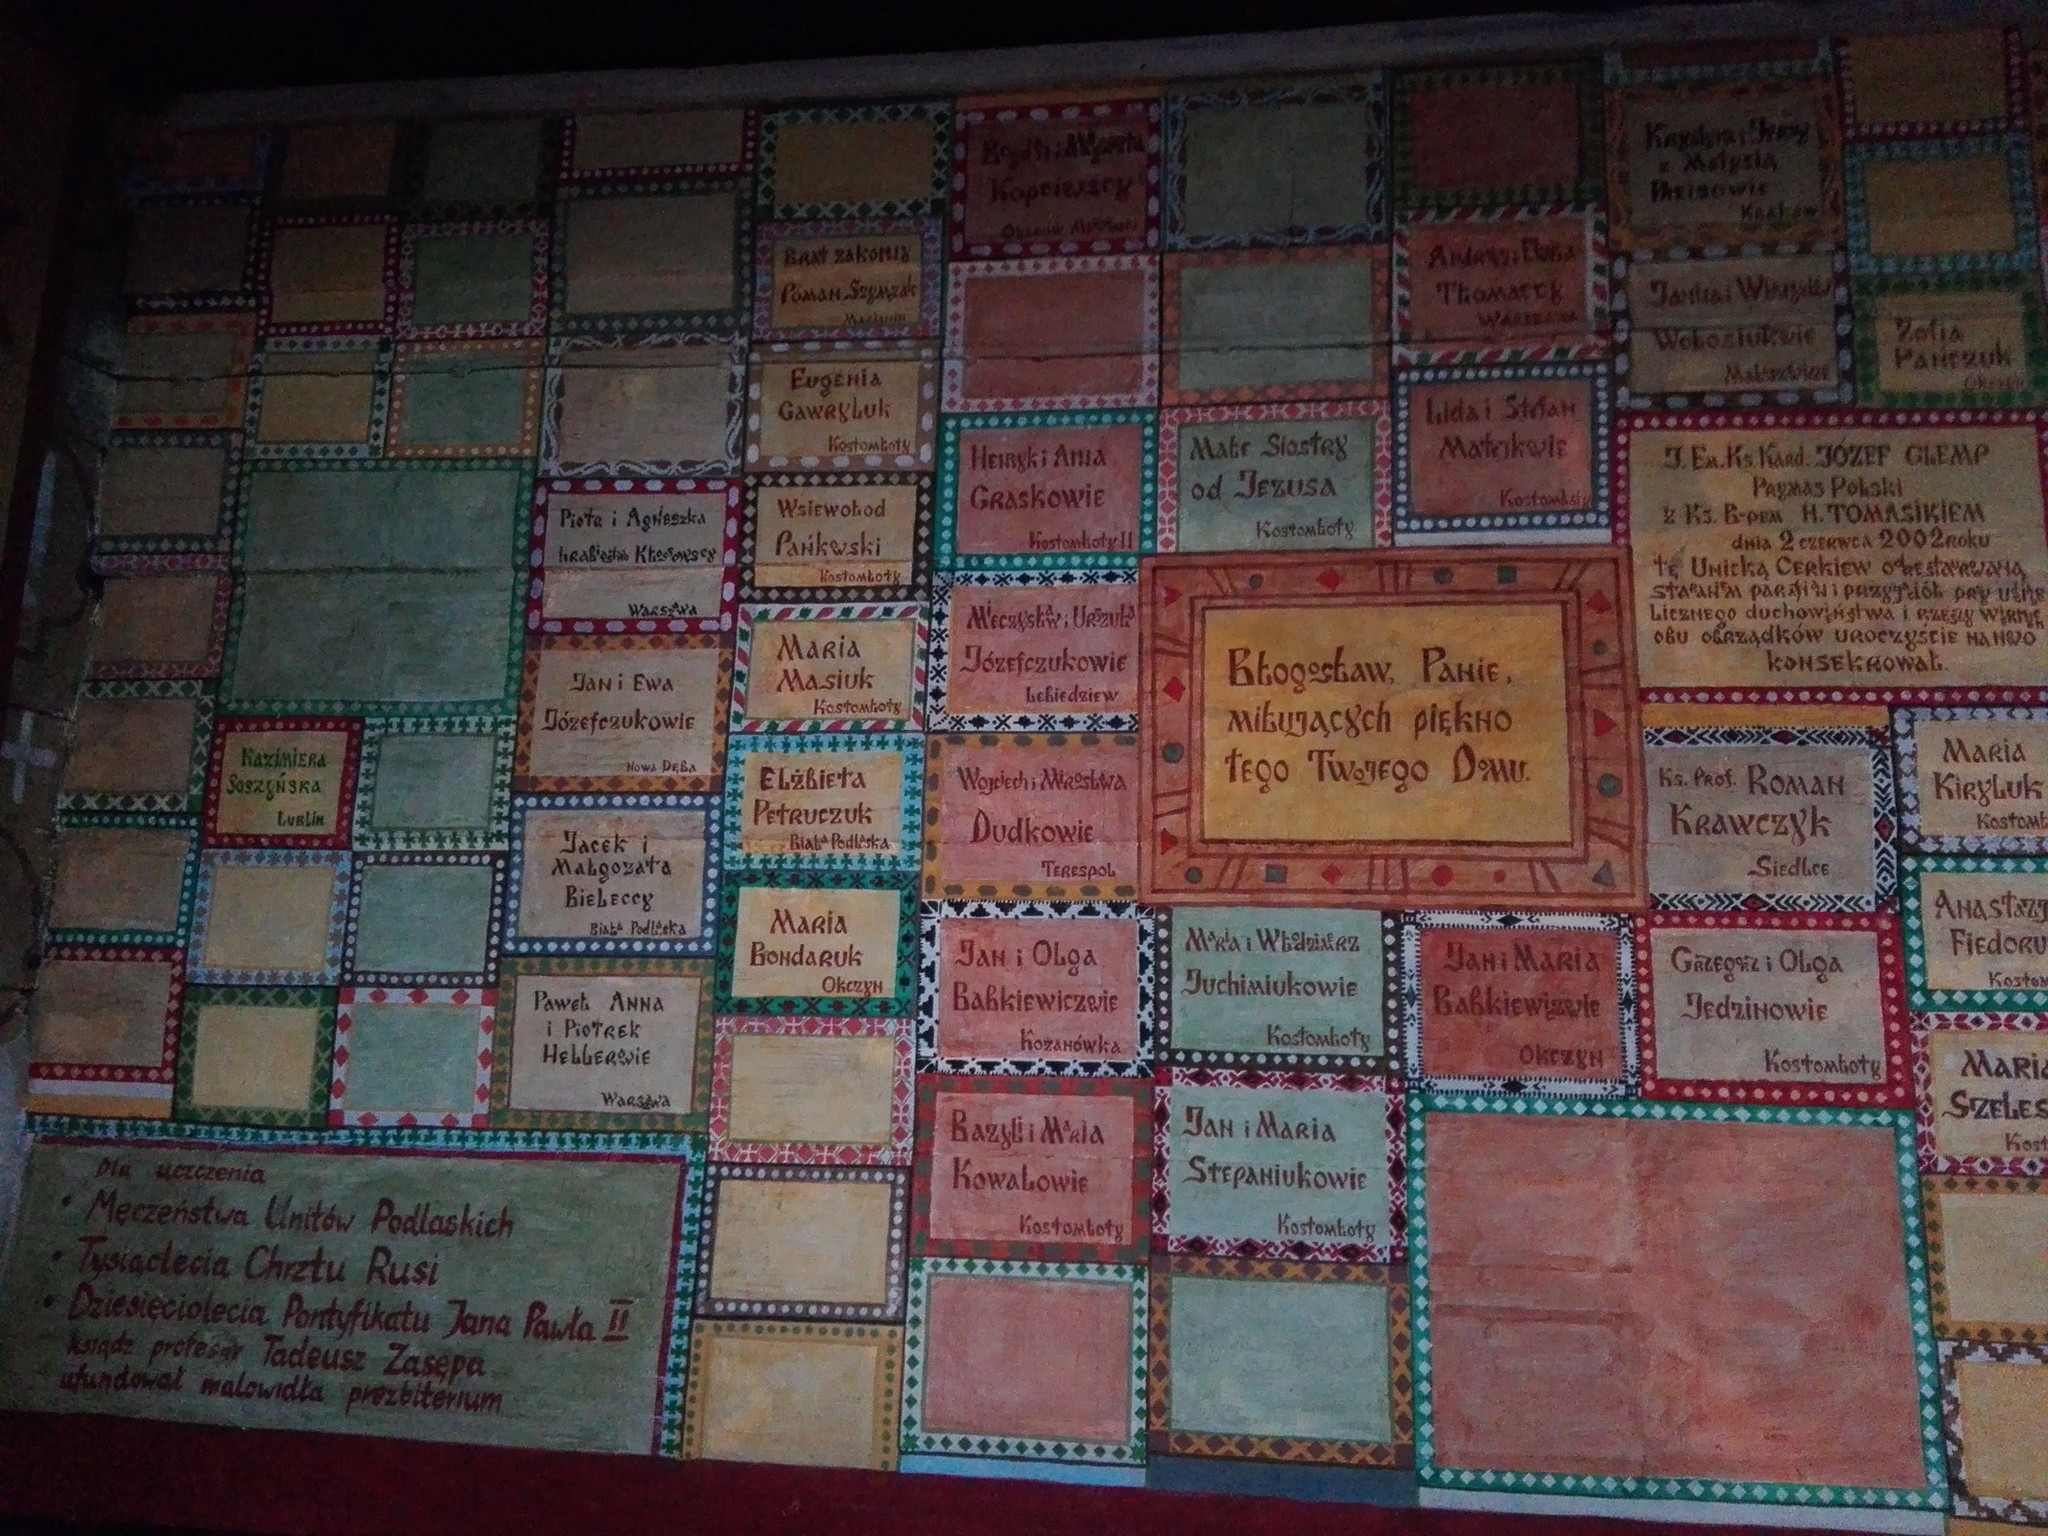 Brat zakonny
Roman Szymczak
Eugenia
Gawryluk
Kostomłoty
Wsiewołod
Pańkowski
Kostomłoty
Piotr i Agnieszka
Warszawa
Maria
Masiuk
Kostomłoty
Jan i Ewa
Józefczukowie
Nowa Dęba
Kazimiera
Soszyńska
Lublin
Elżbieta
Petruczuk
Biała Podlaska
Jacek i
Małgozata
Bieleccy
Biała Podlaska
Maria
Bondaruk
Okczyn
Paweł Anna
i Piotrek
Hellerowie
Warszawa
Dla uczczenia
• Męczeństwa Unitów Podlaskich
• Tysiąclecia Chrztu Rusi
• Dziesięciolecia Pontyfikatu Jana Pawła II
ksiądz profesor Tadeusz Zasępa
ufundował malowidła prezbiterium
Henryk i Anna
Graskowie
Kostomłoty II
Mieczysław i Urszula
Józefczukowie
Lebiedziew
Wojciech i Mirosława
Dudkowie
Terespol
Jan i Olga
Babkiewiczowie
Kożanówka
Bazyli i Maria
Kowalowie
Kostomłoty
Małe Siostry
od Jezusa
Kostomłoty
Andrzej i
Warszawa
Lida i Stefan
Matejkowie
Kostomłoty
Błogosław, Panie,
miłujących piękno
tego Twojego Domu.
Maria i Włodzimierz
Juchimiukowie
Kostomłoty
Jan i Maria
Stepaniukowie
Kostomłoty
Jan i Maria
Okczyn
Krystyna i Jerzy
z Matyldą
Kraków
Janina i
Zofia
Pańczuk
Okczyn
J. Em. Ks. Kard. JÓZEF GLEMP
Prymas Polski
z Ks. B-pem H. TOMASIKIEM
dnia 2 czerwca 2002 roku
tę Unicką Cerkiew odrestaurowaną
staraniem parafii i przyjaciół przy udziale
licznego duchowieństwa i rzeszy wiernych
obu obrządków uroczyście na nowo
konsekrował.
Ks. Prof. Roman
Krawczyk
Siedlce
Grzegorz i Olga
Jedzinowie
Kostomłoty
Maria
Kiryluk
Maria